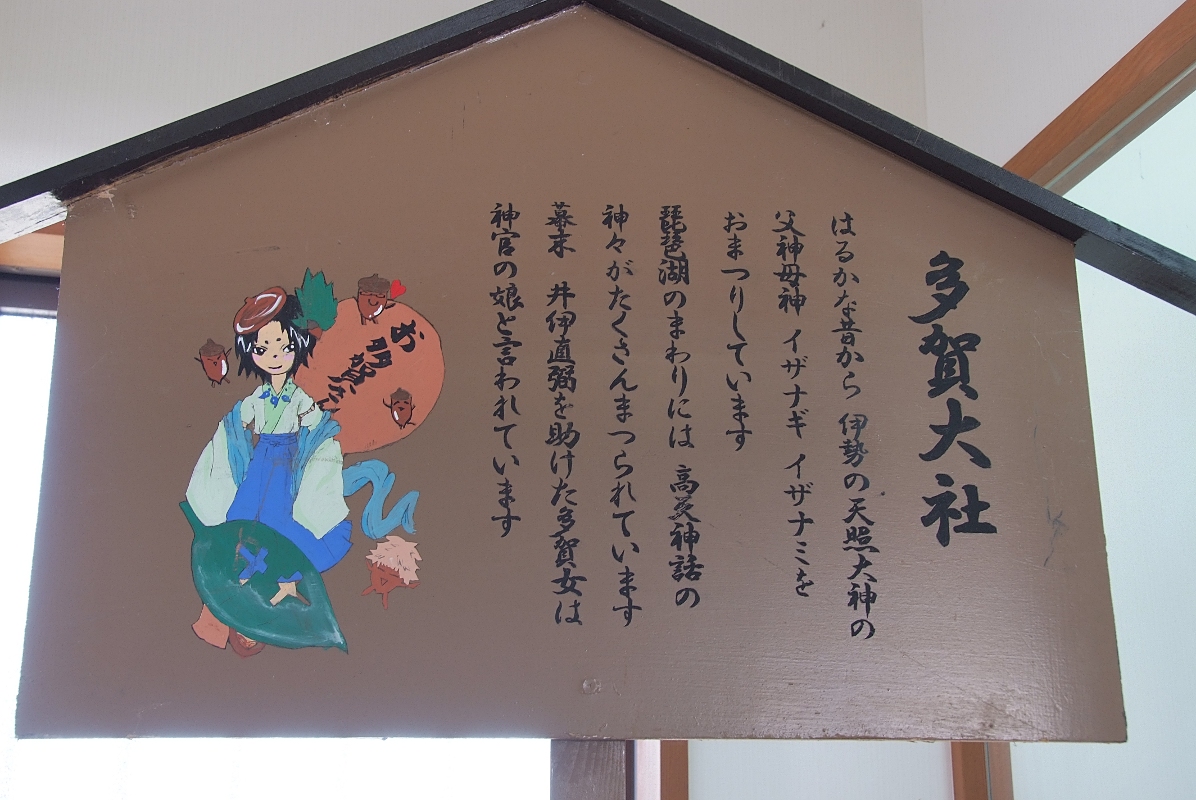 多賀大社
はるかな昔から 伊勢の天照大神の
父神母神 イザナギ イザナミを
おまつりしています
琵琶湖のまわりには 高天神話の
神々がたくさんまつられています
幕末 井伊直弼を助けた多賀女は
神官の娘と言われています
お多賀さん